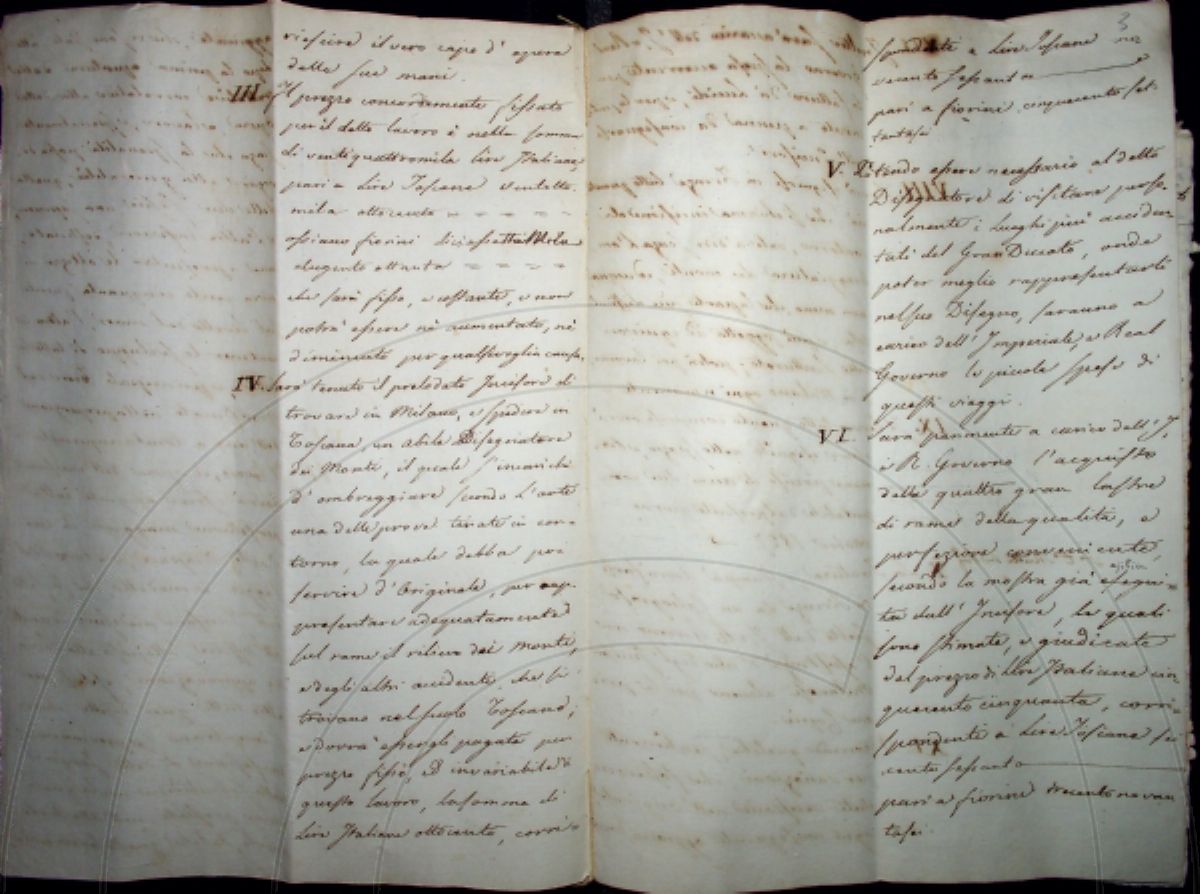 riescire il vero capo d'opera
delle sue mani.
III. Il prezzo concordemente fissato
per il detto lavoro è nella somma
di ventiquattromila lire Italiane,
pari a Lire Toscane ventotto
mila ottocento = = = =
ossiano fiorini diciassette Mila
dugento ottanta = = = =
che sarà fisso, e costante, e non
potrà essere nè aumentato, nè
diminuito per qualsivoglia causa.
IV. Sarà tenuto il prelodato Incisore di
trovare in Milano, e spedire in
Toscana un abile Disegnatore
dei Monti, il quale s'incarichi
d'ombreggiare secondo l'arte
una delle prove tirate in con=
torno, la quale debba poi
servire d'Originale, per rap=
presentare adeguatamente
sul rame il rilievo dei Monti,
e degli altri accidenti, che si
trovano nel suolo Toscano;
e dovrà essergli pagata per
prezzo fisso, ed invariabile di
questo lavoro, la somma di
Lire Italiane ottocento, corri=
3
spondenti a Lire Toscane no=
vecento sessanta
pari a fiorini cinquecento set=
tantasei
V. Essendo essere necessario al detto
Disegnatore di visitare perso=
nalmente i Luoghi più acciden=
tali del Gran Ducato, onde
poter meglio rappresentarli
nel suo Disegno, saranno a
carico dell'Imperiale, e Real
Governo le piccole spese di
questi viaggi.
VI. Sarà parimente a carico dell'I.
e R. Governo l'acquisto
delle quattro gran lastre
di rame della qualità, e
perfezione conveniente,
secondo la mostra già esegui=
ta dall'Incisore, le quali
sono stimate, e giudicate
del prezzo di Lire Italiane cin=
quecento cinquanta, corri=
spondente a Lire Toscane se=
cento sessanta
pari a fiorini trecento novan
tasei